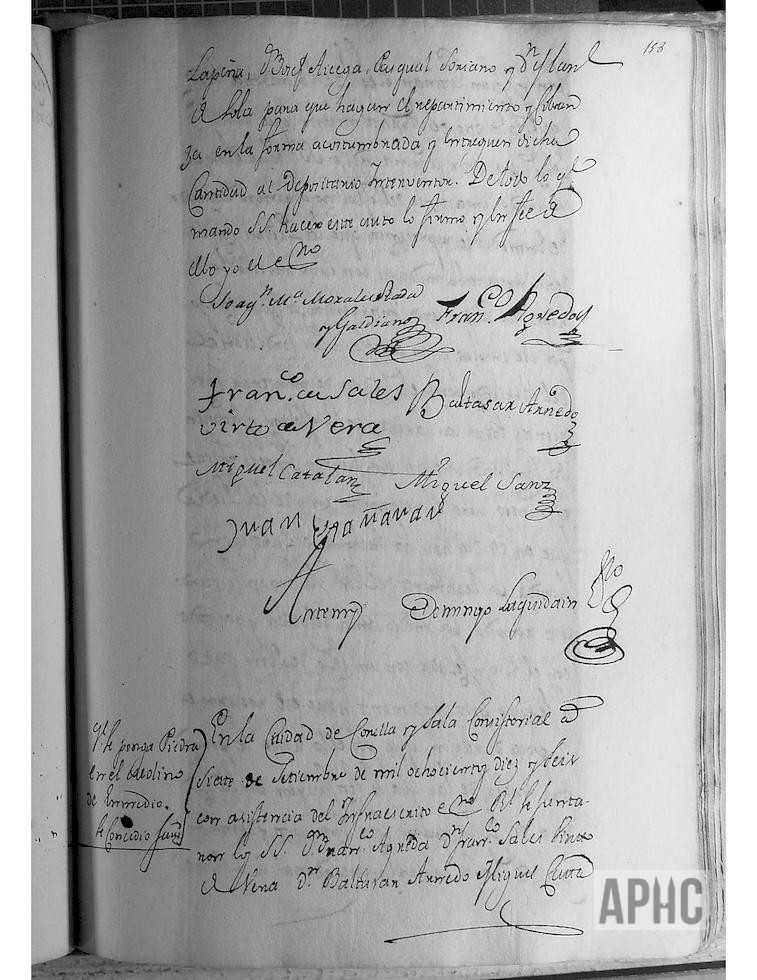 158
Lapeña, Dn Josef Arcega, Pasqual Soriano y Dn
de Sola para que hagan el repartimiento y Cobran
za en la forma acostumbrada y entreguen dicha
Cantidad al Depositario Interventor. De todo lo ql
mandó SS. hacer este auto lo firmo y en fee de
ello yo el Eno
Joaqn. Ma. Morales Rada
y Galdiano Franco. Agreda
Franco. de Sales Baltasar Arnedo
Virto de Vera
Miguel Catalan Miguel Sanz
Juan Cañavar
Antemy Domingo Laquidain Sno
ql. se ponga Piedra
en el molino
de Enmedio.
Se Concedio
En la Ciudad de Corella y Sala Consistorial a
siete de Setiembre de mil ochocientos diez y seis
con asistencia del Infraescrito eno Rl. se junta-
ron los SS. Dn Franco. Agreda Dn Franco. Sales Virto
de Vera Dn. Baltasar Arnedo Miguel Cata
APHC